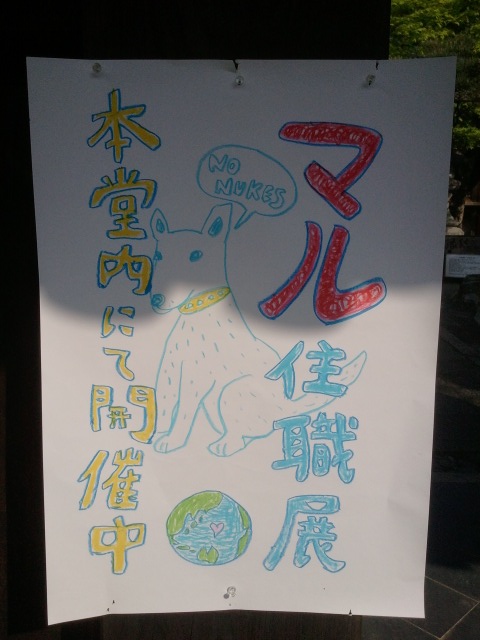 マル住職展
NO
NUKES
本堂内にて開催中